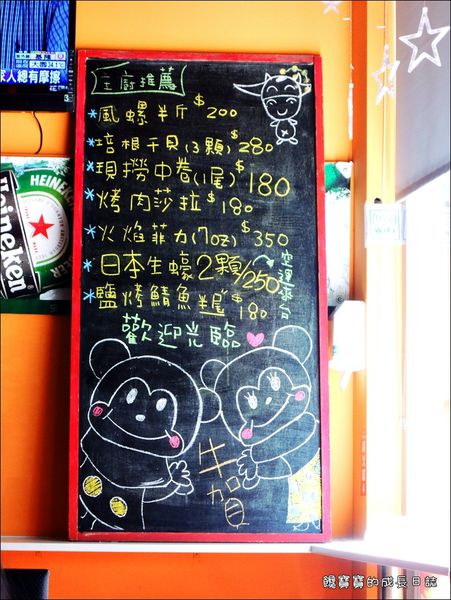 基隆
大雨 34.1℃
家人總有摩擦
HEINEKEN
Heineken
主廚推薦
風螺半斤 $200
培根干貝(3顆) $280
現撈中卷(1尾) $180
烤肉莎拉 $180
火焰菲力(7oz) $350
日本生蠔2顆/250
空運來台
鹽烤鯖魚半尾 $180
歡迎光臨
牛賀
WiFi
饅寶寶的成長日誌